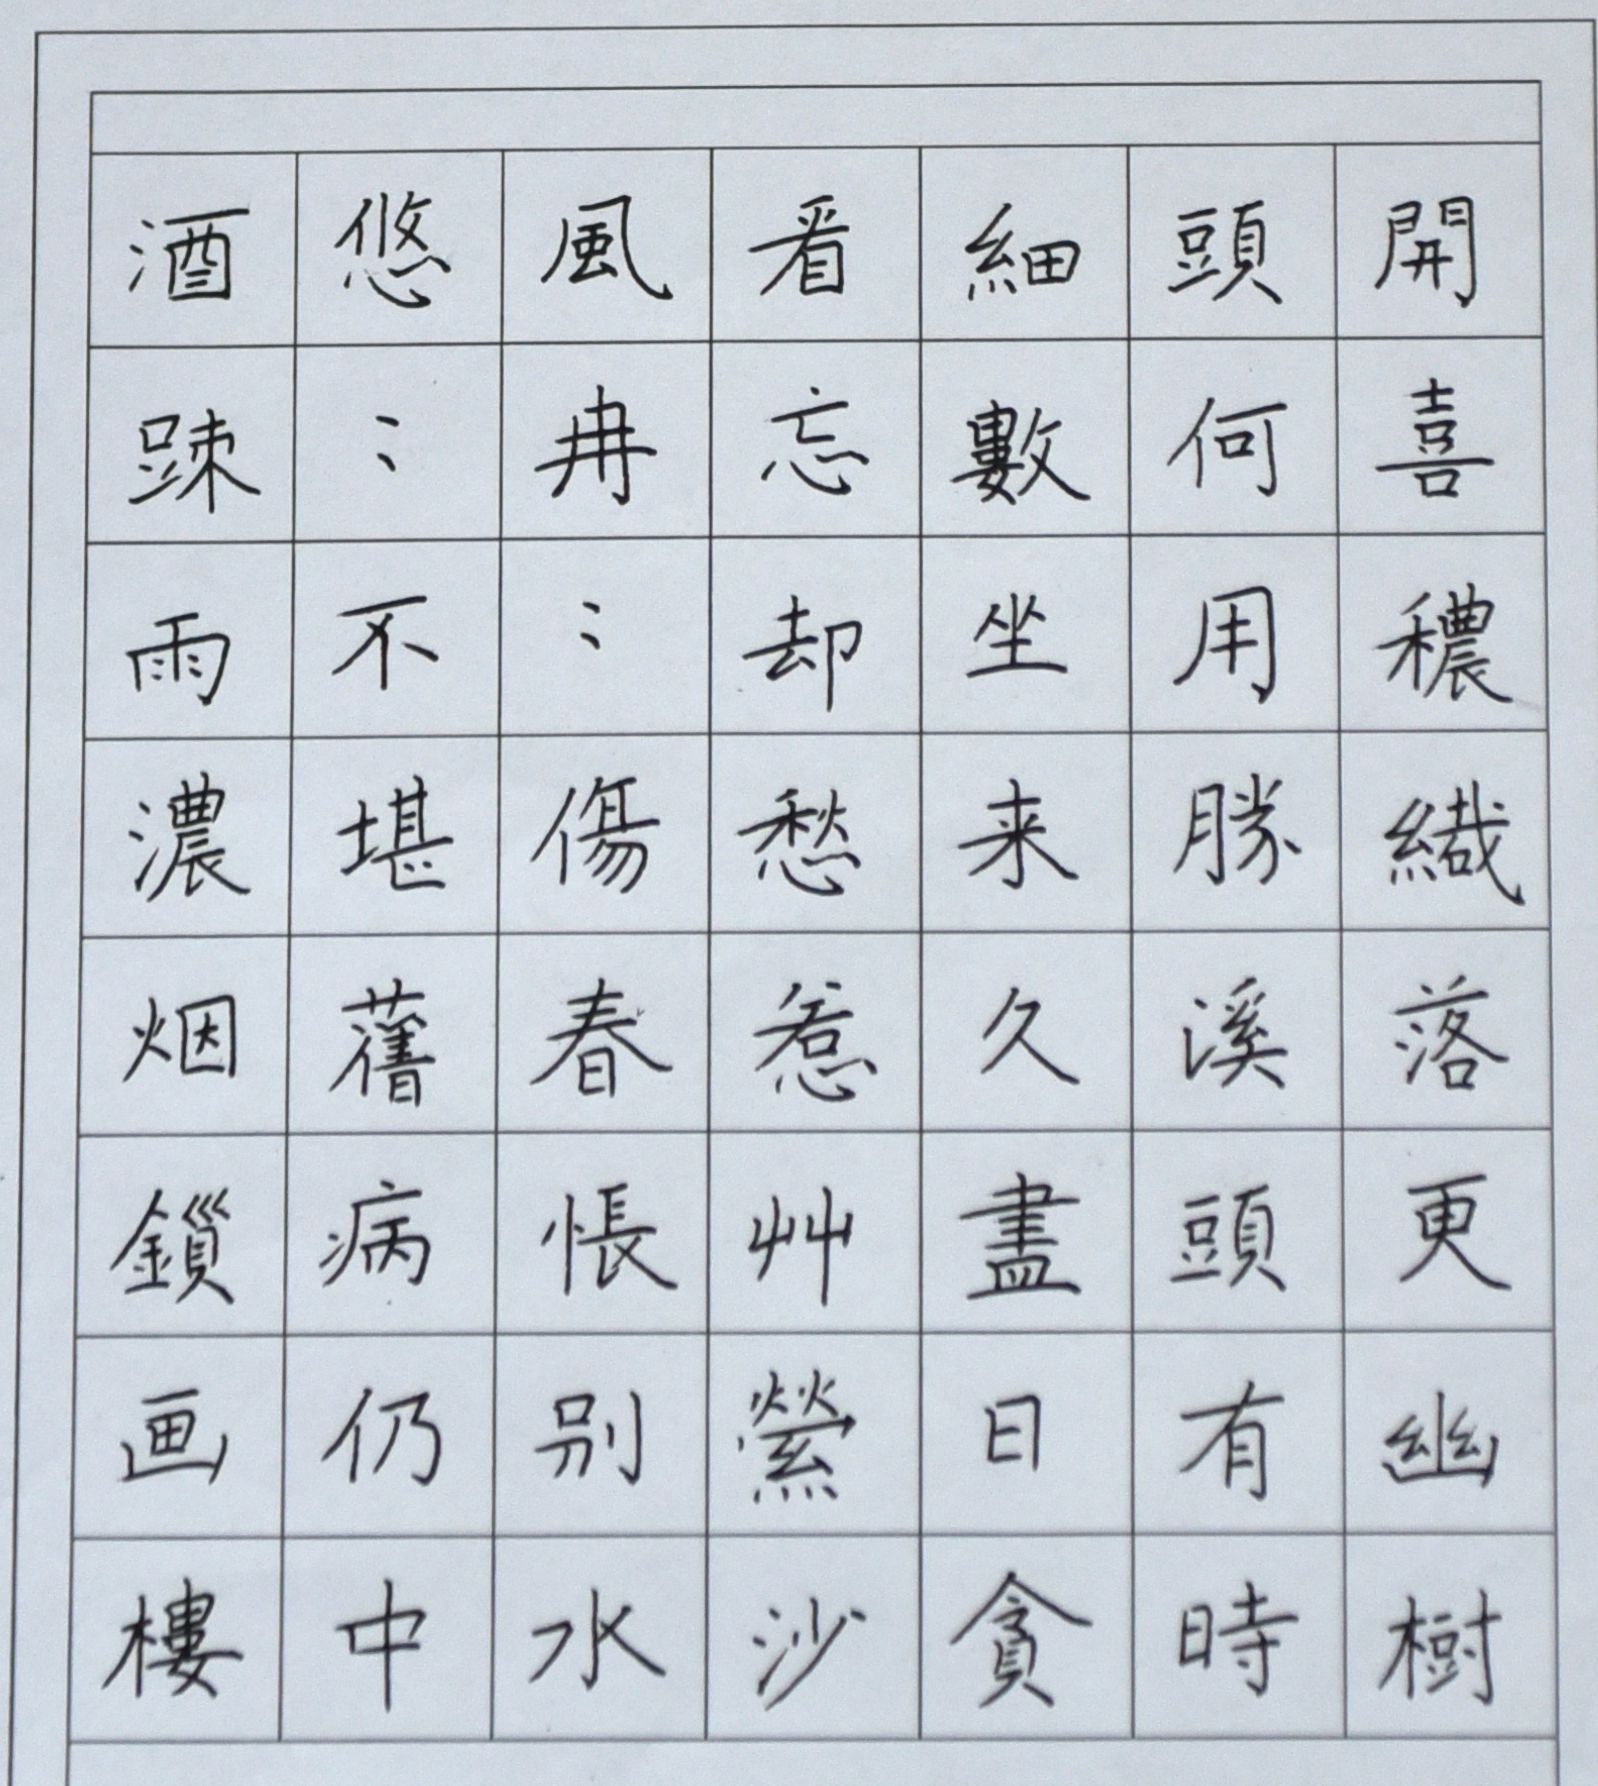 開喜穠織落更幽樹
頭何用勝溪頭有時
細數坐来久盡日貪
看忘却愁惹艸縈沙
風冉〻傷春悵别水
悠〻不堪舊病仍中
酒踈雨濃烟鎻画樓